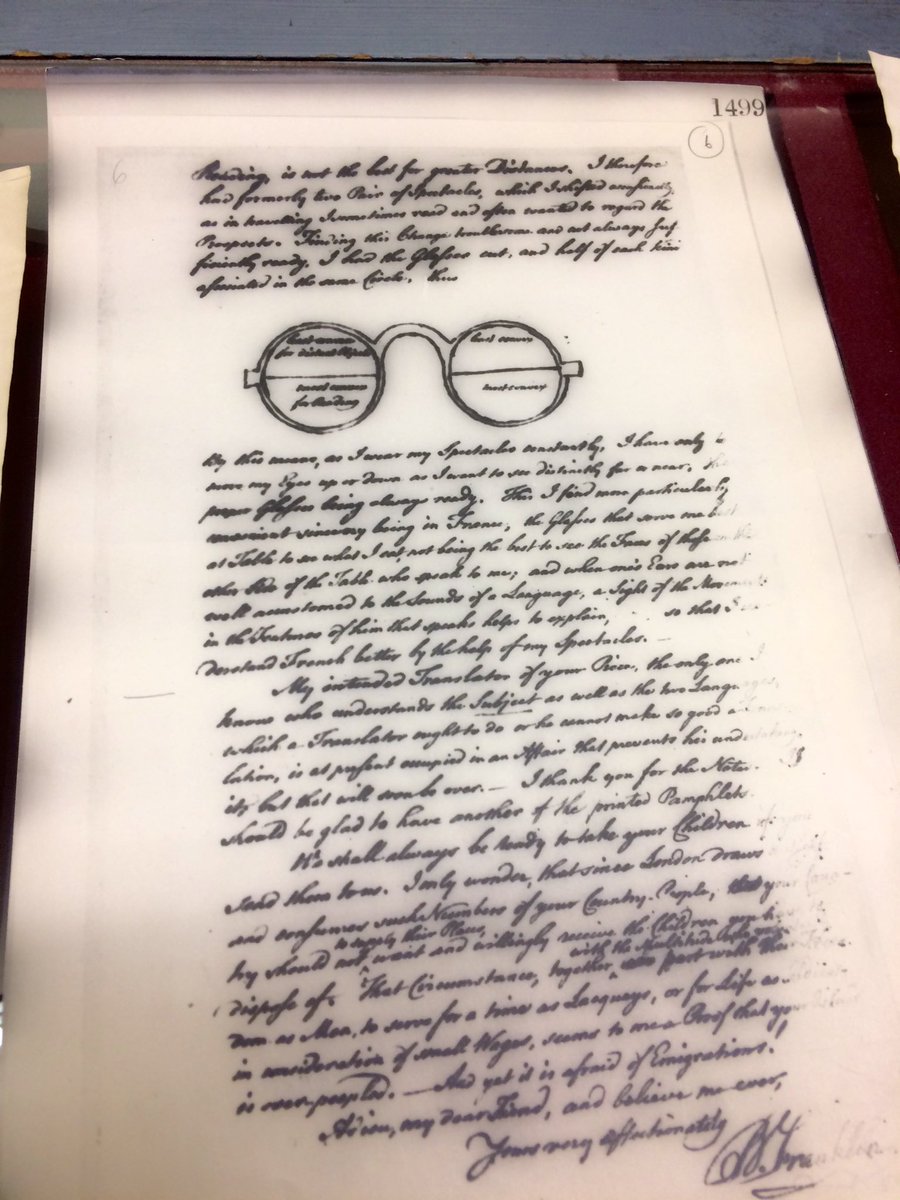 1499
6
6
Reading, is not the best for greater Distances. I therefore
had formerly two Pair of Spectacles, which I shifted occasionally,
as in travelling I sometimes read and often wanted to regard the
Prospects. Finding this Change troublesome and not always suf
ficiently ready, I had the Glasses cut, and half of each kind
associated in the same Circle, thus
least convex
for distant Objects
most convex
for Reading
least convex
most convex
By this means, as I wear my Spectacles constantly, I have only to
move my Eyes up or down as I want to see distinctly far or near, the
proper Glasses being always ready. This I find more particularly
convenient since my being in France, the Glasses that serve me best
at Table to see what I eat, not being the best to see the Faces of those on the
other Side of the Table who speak to me; and when one's Ears are not
well accustomed to the Sounds of a Language, a Sight of the Movements
in the Features of him that speaks helps to explain, so that I
derstand French better by the help of my Spectacles. —
My intended Translator of your Piece, the only one I
know who understands the Subject as well as the two Languages,
which a Translator ought to do or he cannot make so good a
lation, is at present occupied in an Affair that prevents his undertaking
it; but that will soon be over. — I thank you for the Notes. I
should be glad to have another of the printed Pamphlets.
We shall always be ready to take your Children if you
send them to us. I only wonder, that since London draws
and consumes such Numbers of your Country People, that your Coun-
try should not
to supply their Places,
want and willingly receive the Children you
dispose of. That Circumstance, together
with the Multitude who
part with their Free
dom as Men, to serve for a time as Lacqueys, or for Life as
in consideration of small Wages, seems to me a Proof that your
is over-peopled. — And yet it is afraid of Emigrations!
Adieu, my dear Friend, and believe me ever,
Yours very affectionately
B. Franklin